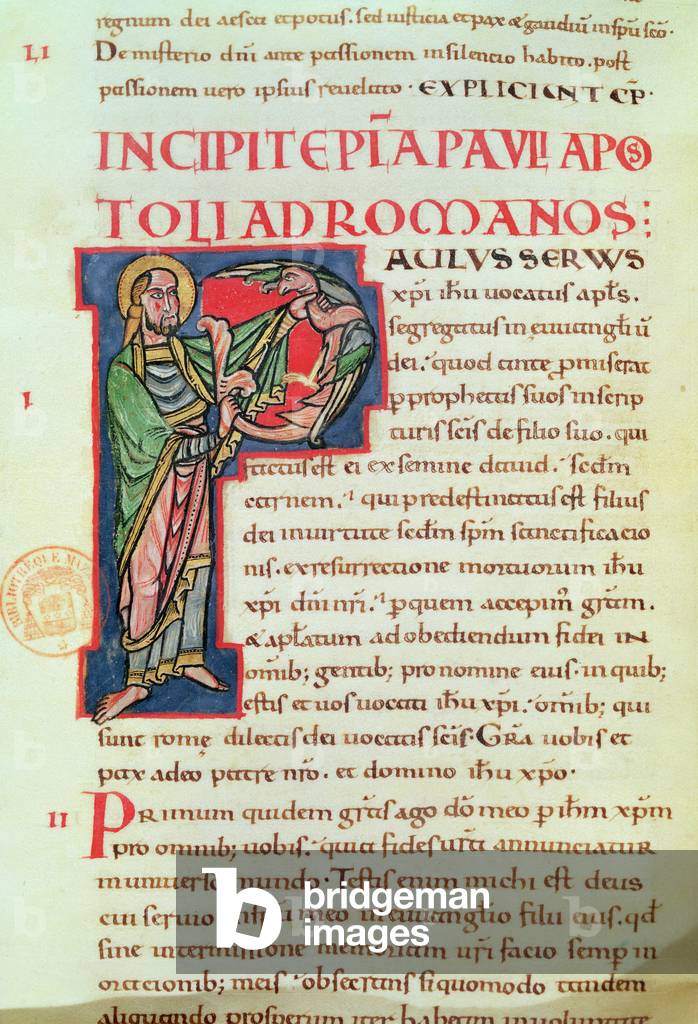 regnum dei aesca et potus. sed iusticia et pax & gaudiū in spū scō.
LI
De misterio dn̄i ante passionem in silencio habito. post
passionem uero ipsius reuelato. EXPLICIUNT CP̄.
INCIPIT EPĪA PAVLI APOS
TOLI AD ROMANOS:
PAULUS SERWS
xp̄i ih̄u uocatus apl̄s.
segregatus in euuangl̄iū
dei. quod ante p̄miserat
p̄ prophetas suos in scrip
turis sc̄is de filio suo. qui
I
factus est ei ex semine dauid. secd̄m
carnem. qui predestinatus est filius
dei in uirtute secd̄m sp̄m sanctificacio
nis. ex resurrectione mortuorum ih̄u
xp̄i dn̄i nr̄i. p̄ quem accepim̄ gr̄am.
& apl̄atum ad obediendum fidei IN
om̄ib; gentib; pro nomine eius. in quib;
estis et uos uocati ih̄u xp̄i. om̄ib; qui
sunt romę dilectis dei uocatis sc̄is. Gr̄a uobis et
pax a deo patre nr̄o. et domino ih̄u xp̄o.
II
PRimum quidem gr̄as ago dō meo p̄ ih̄m xp̄m
pro omnib; uobis. quia fides ur̄a annunciatur
in uniuerso mundo. Testis enim michi est deus
cui seruio in sp̄u meo in euuangl̄io filii eius. qd̄
sine intermissione memoriam ur̄i facio semp̄ in
orationib; meis. obsecrans si quomodo tandem
aliquando prosperum iter habeam in uoluntate
BIBLIOTHEQUE MAZ
b
bridgeman
images